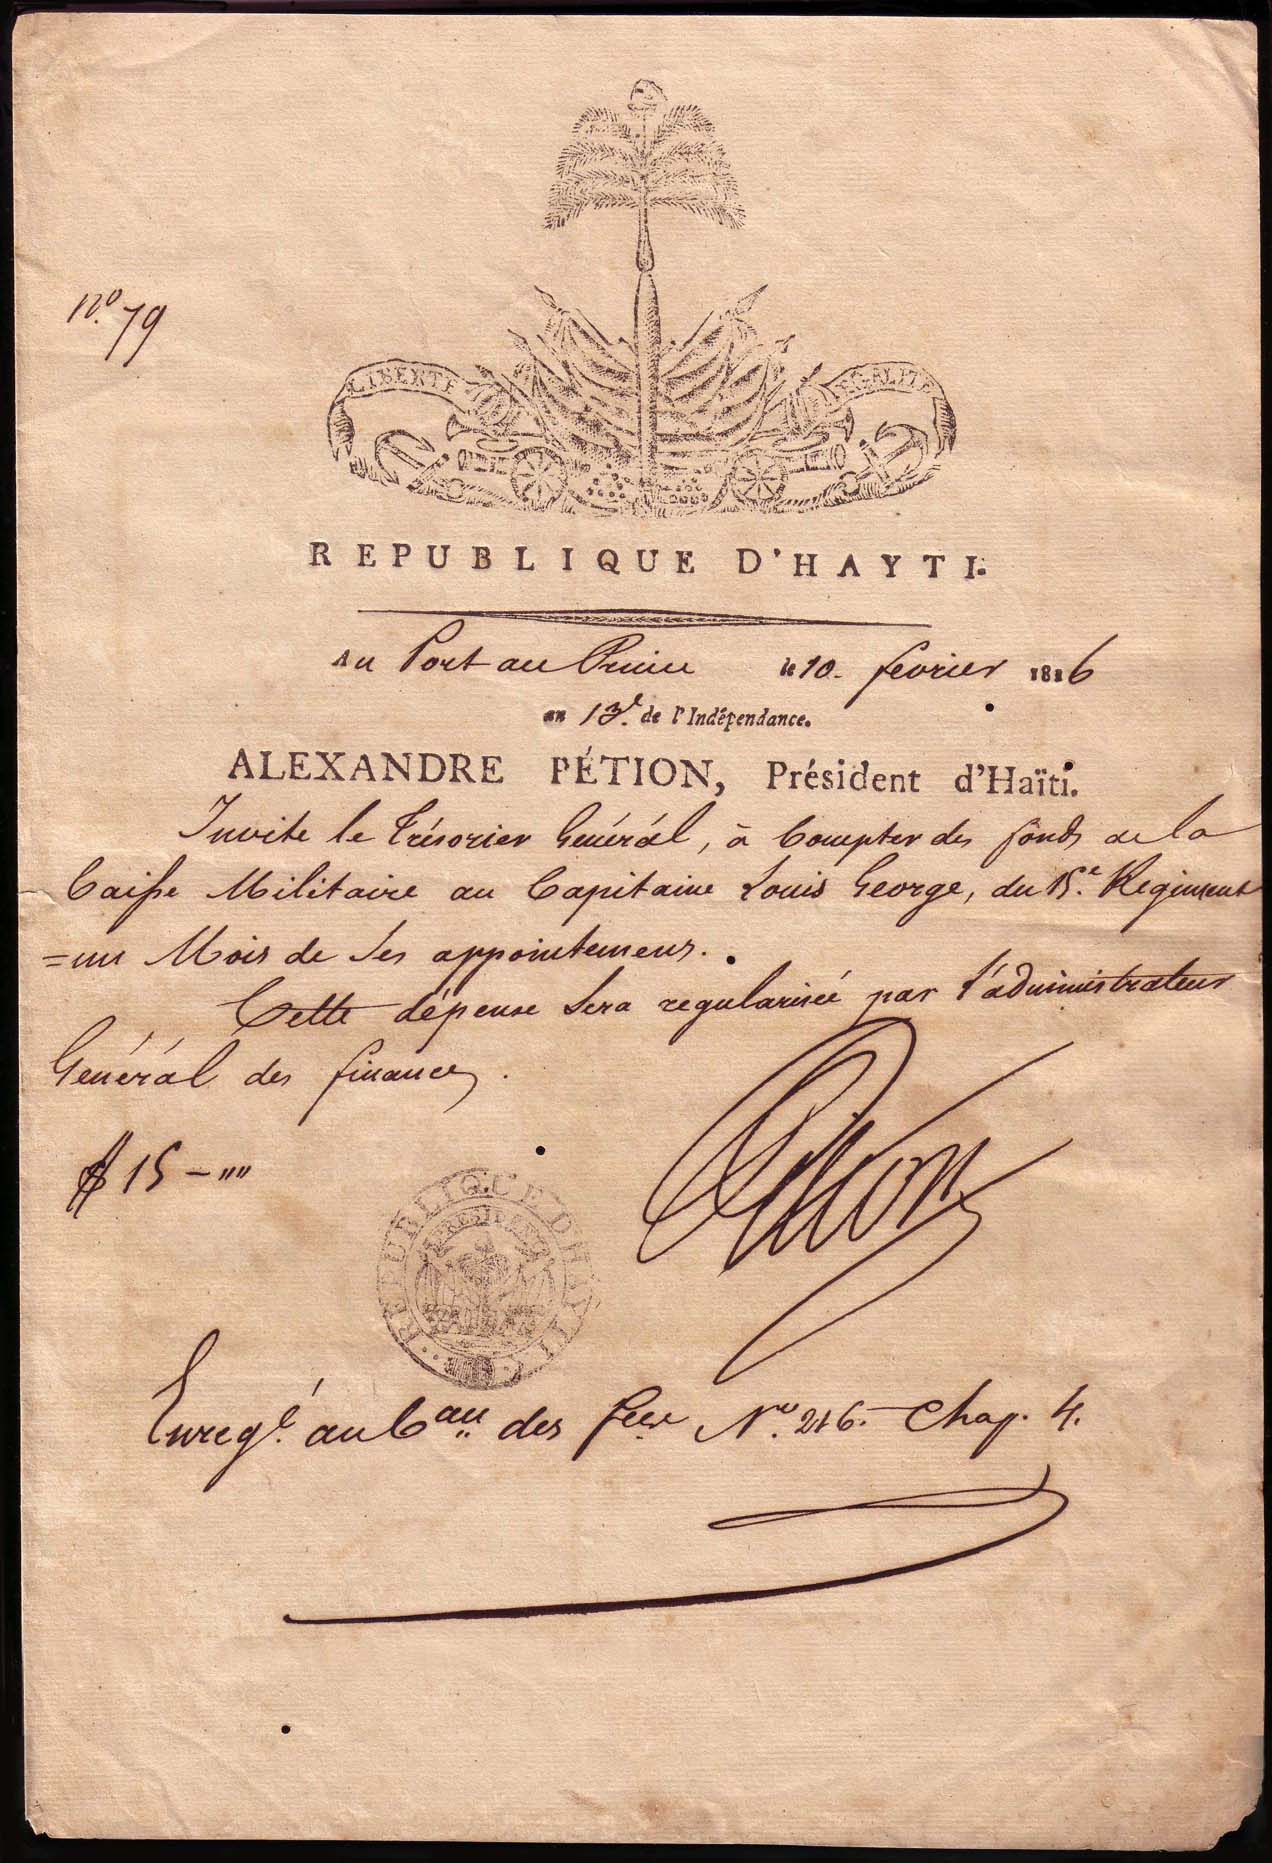 n.º 79
LIBERTE EGALITE
REPUBLIQUE D'HAYTI.
Au Port au Prince le 10. fevrier 1816
an 13.e de l'Indépendance.
ALEXANDRE PÉTION, Président d'Haïti.
Invite le Trésorier Général, à Compter des fonds de la
Caisse Militaire au Capitaine Louis George, du 15.e Regiment
=un Mois de Ses appointemens.
Cette dépense Sera regularisée par L'administrateur
Général des finances.
$ 15 – ""
Pétion
REPUBLIQUE D'HAYTI
PRESIDENT
Enreg.é au Bau des N.o 216. Chap. 4.